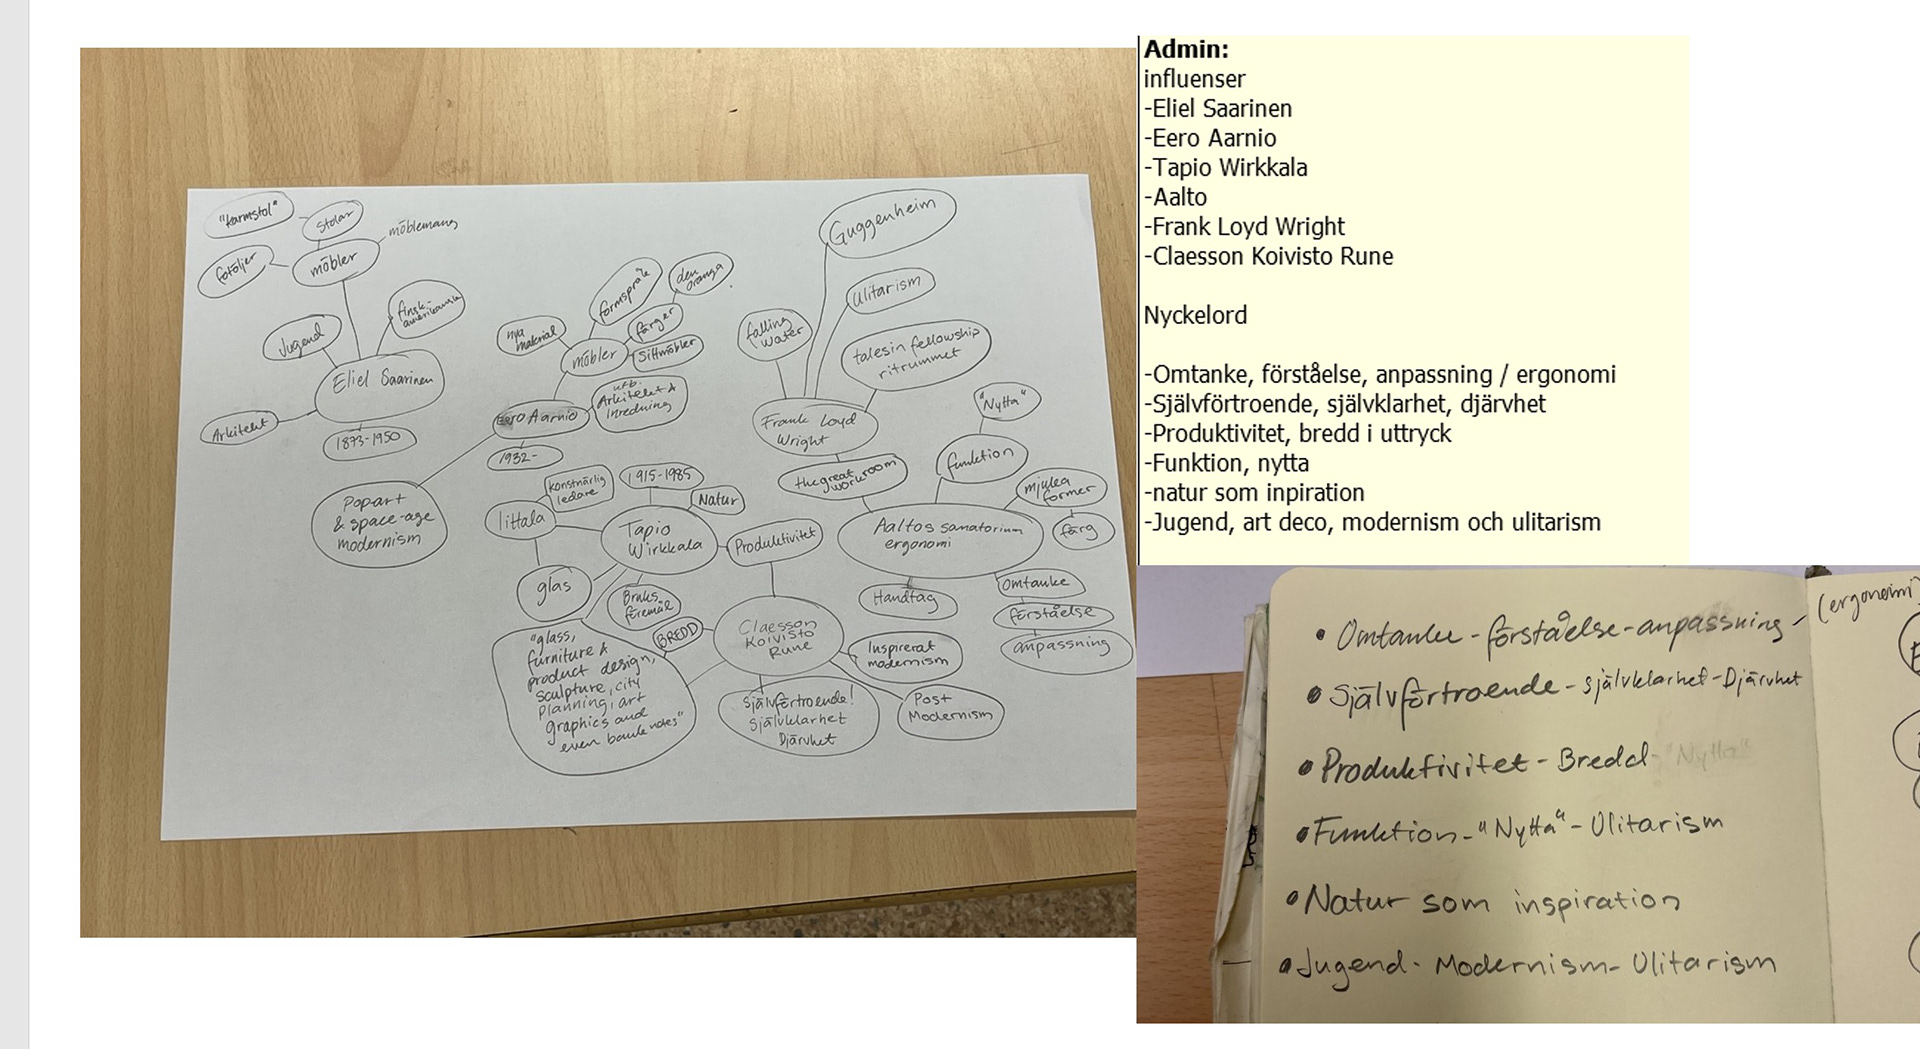 "karmstol"
stolar
möblemang
fotöljer
möbler
Jugend
finsk-
amerikansk
Eliel Saarinen
Arkitekt
1873-1950
formspråk
den
oranga
nya
material
färger
möbler
Sittmöbler
utb.
Arkitekt &
Inredning
Eero Aarnio
1932-
Popart
& space-age
modernism
Guggenheim
Ulitarism
falling
water
talesin fellowship
ritrummet
Frank Loyd
Wright
"Nytta"
the great
workroom
funktion
mjuka
former
färg
Aaltos sanatorium
ergonomi
Handtag
Omtanke
förståelse
anpassning
konstnärlig
ledare
1915-1985
Natur
Iittala
Tapio
Wirkkala
Produktivitet
glas
Bruks
föremål
BREDD
"glass,
furniture &
product design,
sculpture, city
planning, art
graphics and
even bank notes"
Claesson
Koivisto
Rune
Inspirerat
modernism
Självförtroende!
Självklarhet
Djärvhet
Post
Modernism
Admin:
influenser
-Eliel Saarinen
-Eero Aarnio
-Tapio Wirkkala
-Aalto
-Frank Loyd Wright
-Claesson Koivisto Rune
Nyckelord
-Omtanke, förståelse, anpassning / ergonomi
-Självförtroende, självklarhet, djärvhet
-Produktivitet, bredd i uttryck
-Funktion, nytta
-natur som inpiration
-Jugend, art deco, modernism och ulitarism
• Omtanke - förståelse - anpassning - (ergonomi)
• Självförtroende - självklarhet - Djärvhet
• Produktivitet - Bredd - "Nytta"
• Funktion - "Nytta" - Ulitarism
• Natur som inspiration
• Jugend - Modernism - Ulitarism